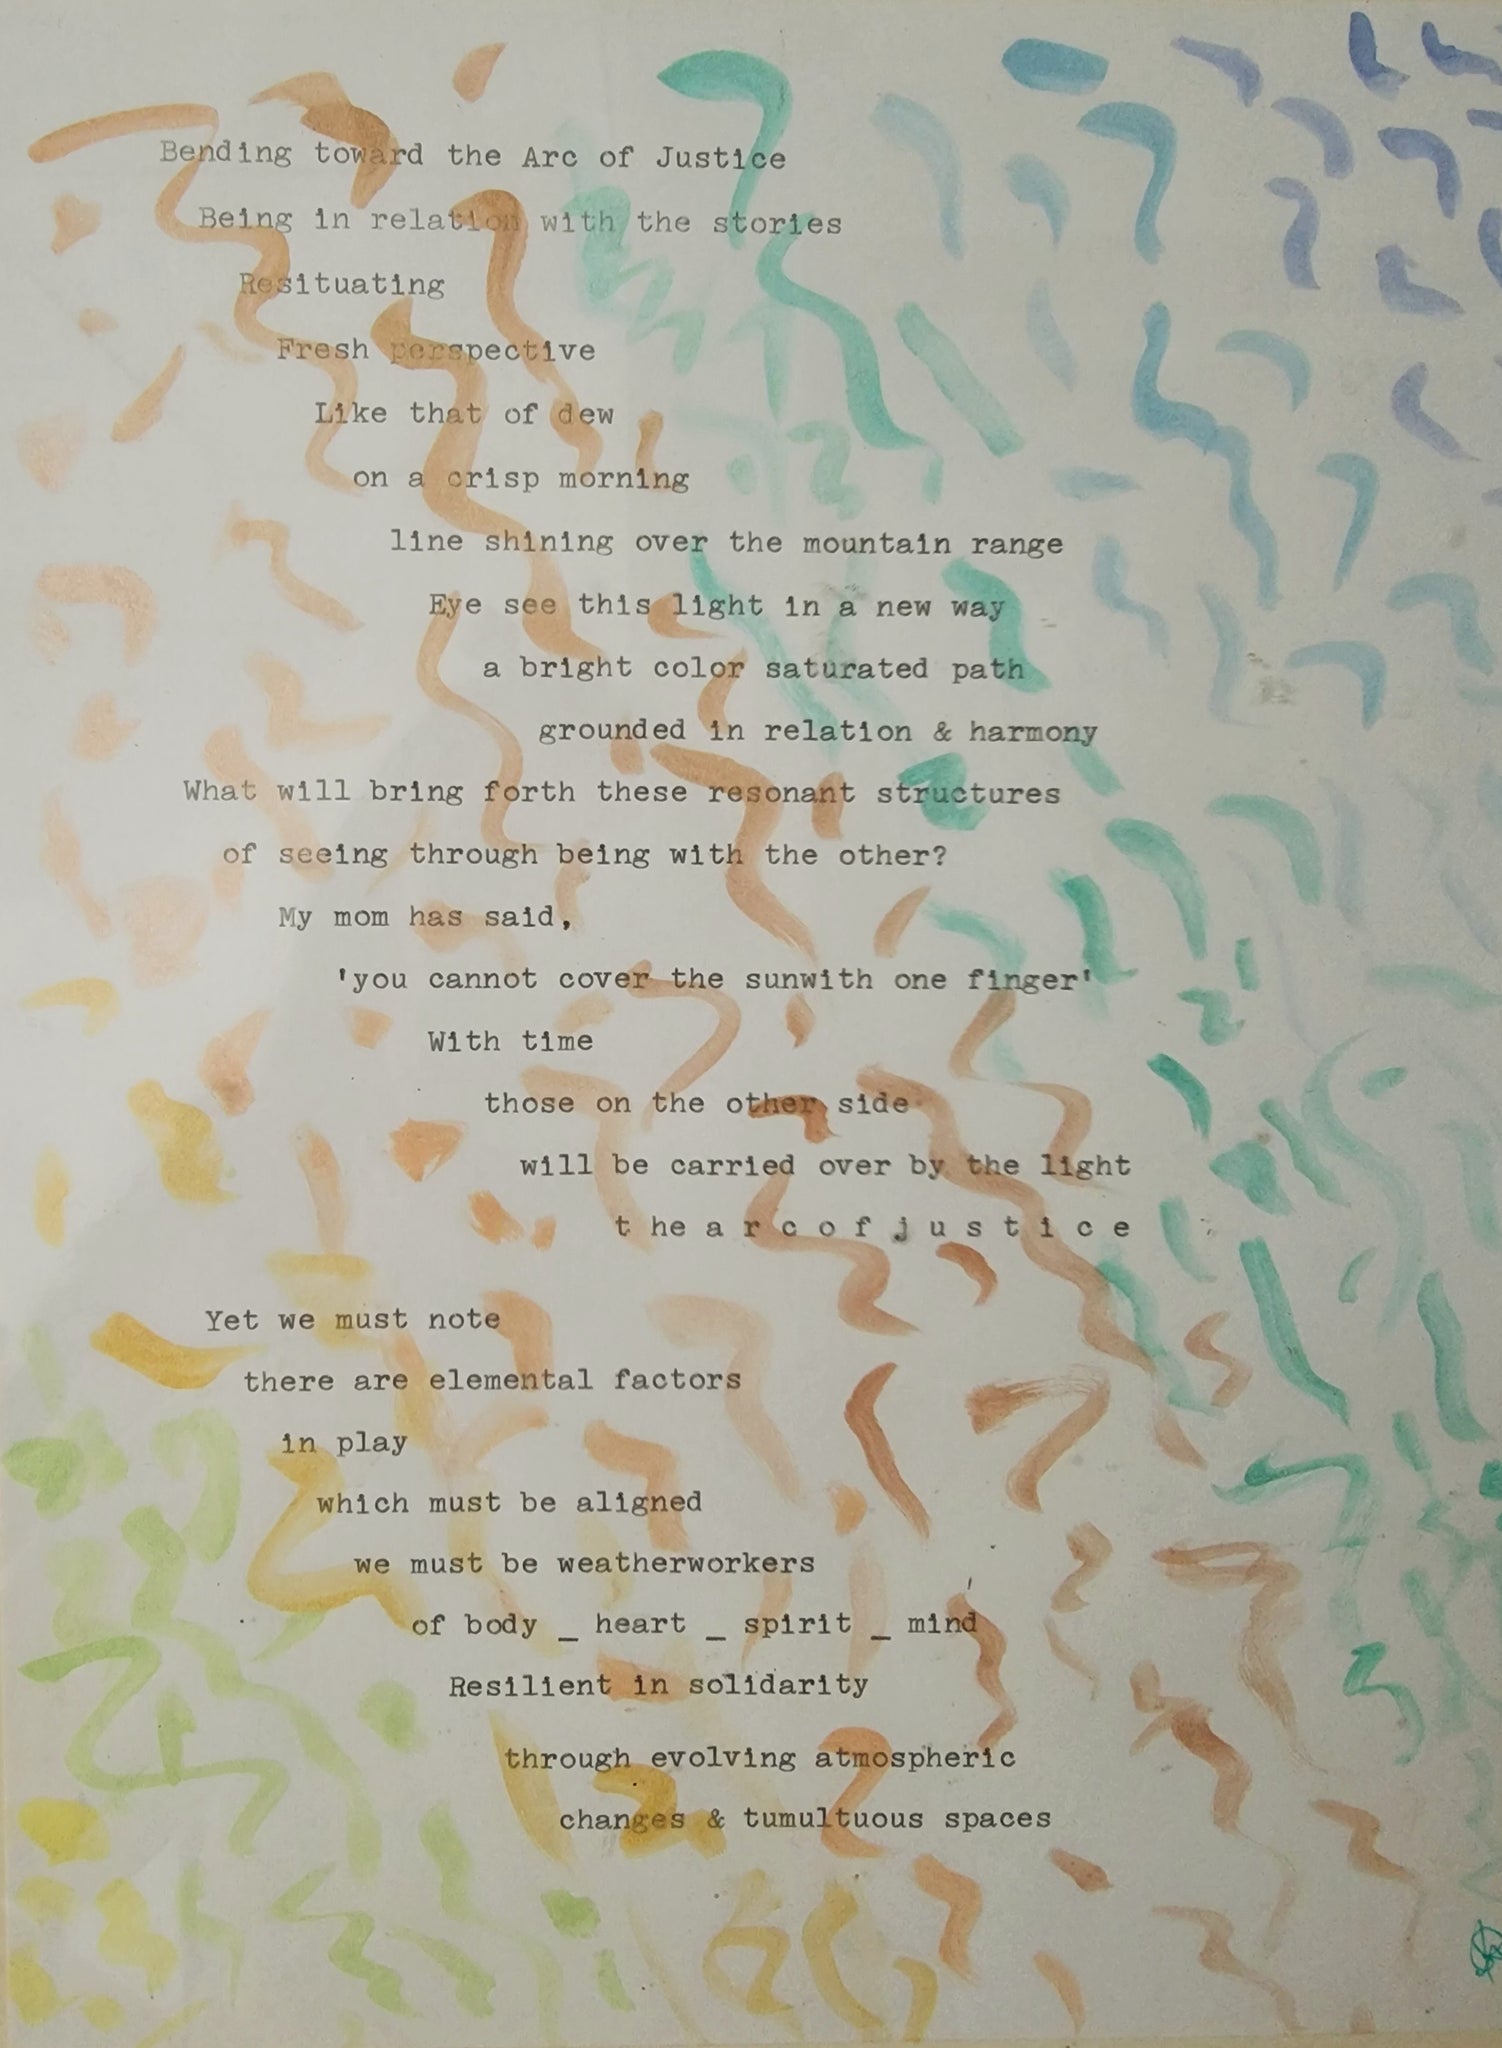 Bending toward the Arc of Justice
Being in relation with the stories
Resituating
Fresh perspective
Like that of dew
on a crisp morning
line shining over the mountain range
Eye see this light in a new way
a bright color saturated path
grounded in relation & harmony
What will bring forth these resonant structures
of seeing through being with the other?
My mom has said,
'you cannot cover the sunwith one finger'
With time
those on the other side
will be carried over by the light
t he a r c o f j u s t i c e
Yet we must note
there are elemental factors
in play
which must be aligned
we must be weatherworkers
of body _ heart _ spirit _ mind
Resilient in solidarity
through evolving atmospheric
changes & tumultuous spaces